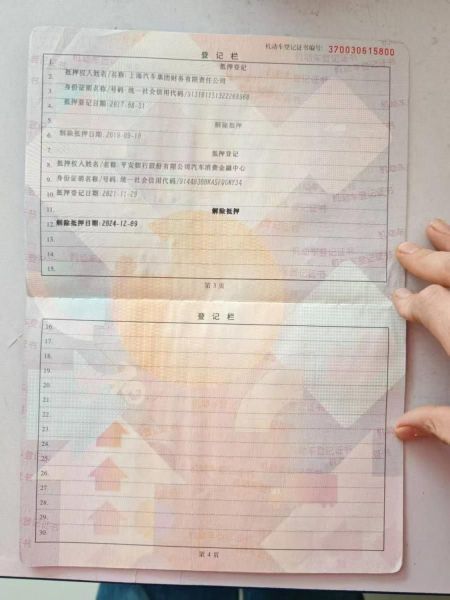 机动车登记证书编号: 370030615800
登记栏
1. 抵押登记
2. 抵押权人姓名/名称: 上海汽车集团财务有限责任公司
3. 身份证明名称/号码: 统一社会信用代码/
4. 抵押登记日期: 2017-08-31
5. 解除抵押
6. 解除抵押日期: 2019-09-10
7. 抵押登记
8. 抵押权人姓名/名称: 平安银行股份有限公司汽车消费金融中心
9. 身份证明名称/号码: 统一社会信用代码/
10. 抵押登记日期: 2021-11-29
11. 解除抵押
12. 解除抵押日期: 2024-12-09
13.
14.
15.
第3页
登记栏
16.
17.
18.
19.
20.
21.
22.
23.
24.
25.
26.
27.
28.
29.
30.
第4页